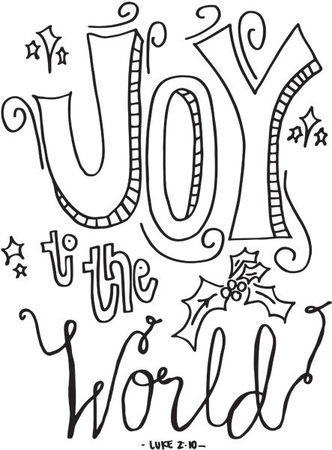 JOY
to the
World!
- LUKE 2:10 -